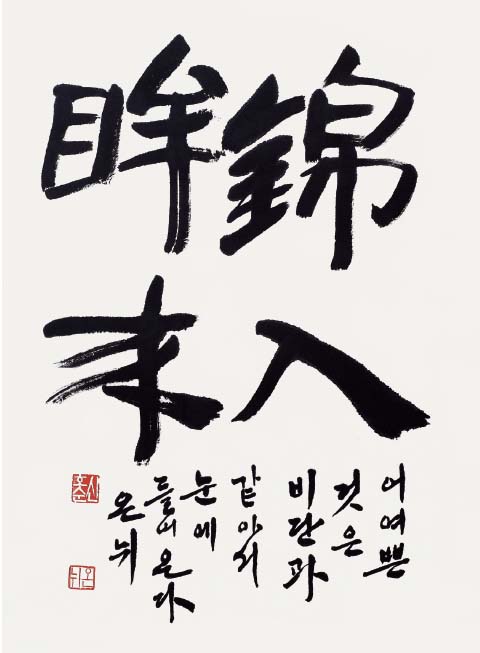 錦入
眸来
어여쁜
것은
비단과
같아서
눈에
들어온다
온뉘
온뉘